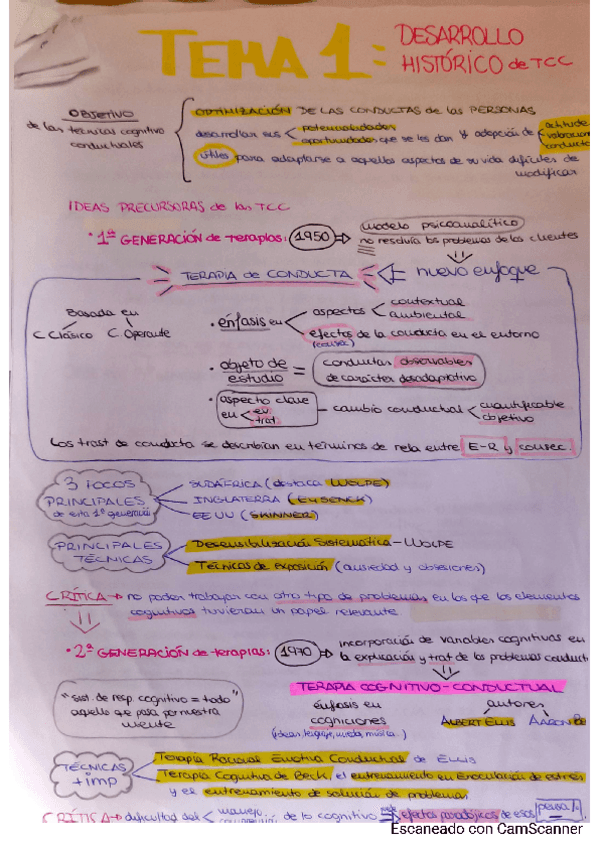 TEMA 1: DESARROLLO
HISTÓRICO de TCC
OBJETIVO
de las técnicas cognitivo
conductuales
OPTIMIZACIÓN DE LAS CONDUCTAS de las PERSONAS
desarrollar sus < potencialidades
oportunidades que se les dan y adopción de < actitudes
valoraciones
conductas
útiles para adaptarse a aquellos aspectos de su vida difíciles de
modificar
IDEAS PRECURSORAS de las TCC
· 1ª GENERACIÓN de terapias: 1950 ⇒ modelo psicoanalítico
no resolvía los problemas de los clientes
TERAPIA de CONDUCTA ⇐ nuevo enfoque
Basada en
C Clásico C Operante
· énfasis en < aspectos < contextual
ambiental
efectos de la conducta en el entorno
(consec)
· objeto de
estudio = conductas observables
de carácter desadaptativo
· aspecto clave
en < ev.
trat. - cambio conductual < cuantificable
objetivo
Los trast de conducta se describían en términos de rela entre E-R y consec.
3 FOCOS
PRINCIPALES
de esta 1ª generación
SUDÁFRICA (destaca WOLPE)
INGLATERRA (EYSENCK)
EEUU (SKINNER)
PRINCIPALES
TÉCNICAS
Desensibilización Sistemática - WOLPE
Técnicas de exposición (ansiedad y obsesiones)
CRÍTICA → no podían trabajar con otro tipo de problemas en los que los elementos
cognitivos tuvieran un papel relevante
· 2ª GENERACIÓN de terapias: 1970 ⇒ incorporación de variables cognitivas en
la explicación y trat de los problemas conduct
TERAPIA COGNITIVO-CONDUCTUAL
"sist. de resp. cognitivo = todo"
aquello que pasa por nuestra
mente
énfasis en
cogniciones
(ideas, lenguaje, música...)
autores
ALBERT ELLIS AARON BE
TÉCNICAS
+ imp
Terapia Racional Emotiva Conductual de ELLIS
Terapia Cognitiva de Beck, el entrenamiento en inoculación de estrés
y el entrenamiento de solución de problemas
CRÍTICA → dificultad del < manejo
de lo cognitivo efectos paradójicos de esos pensa
Escaneado con CamScanner